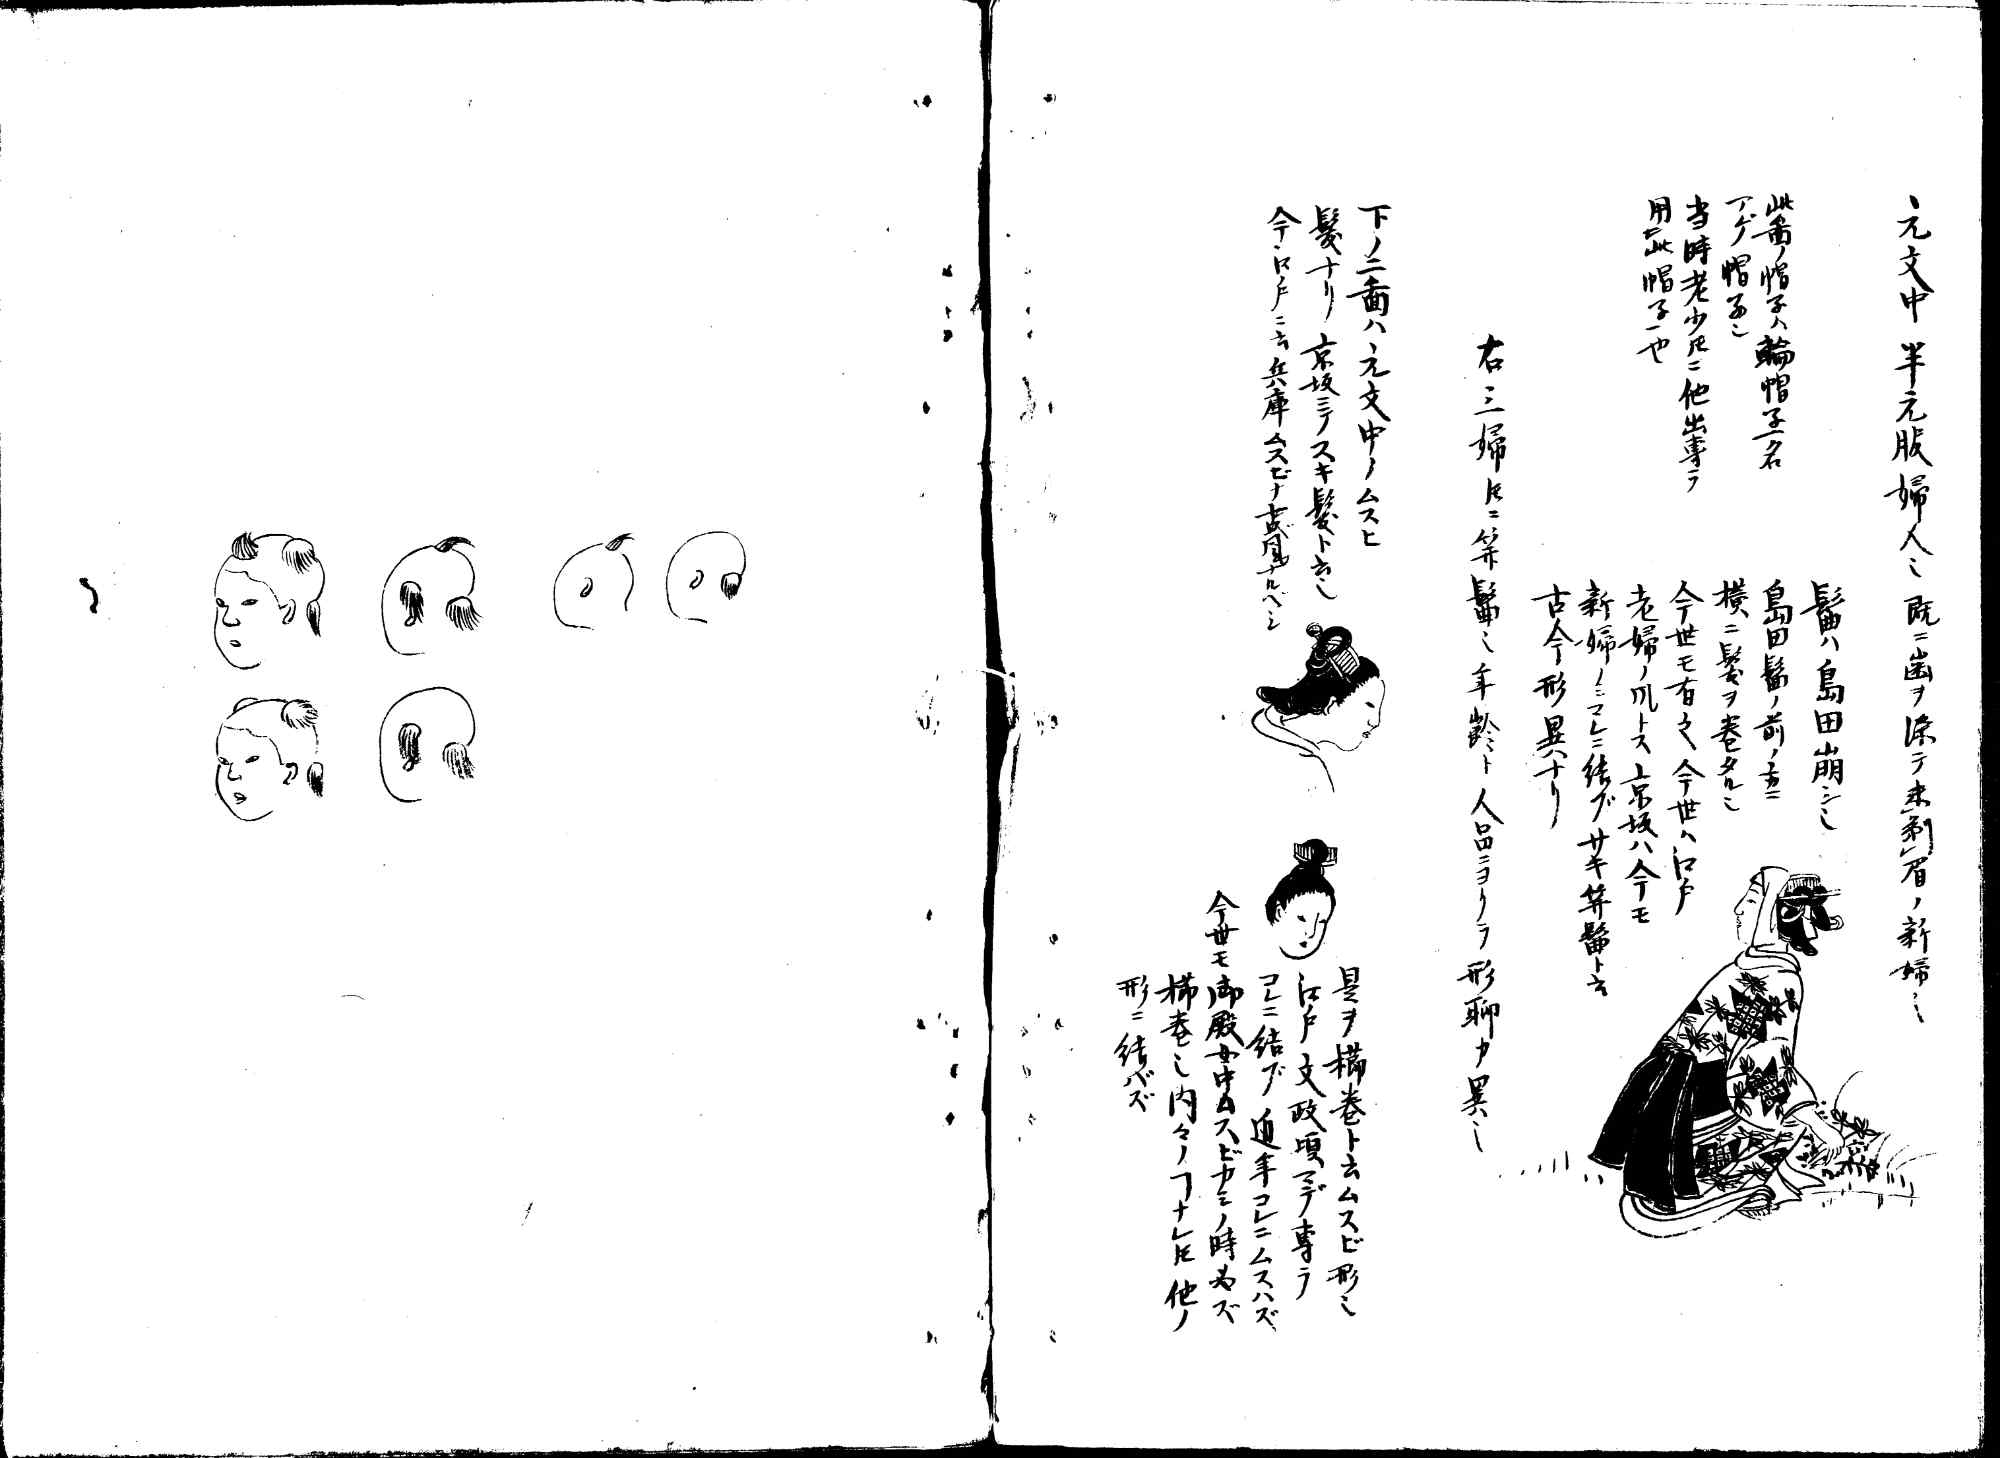 元文中半元服婦人也既ニ歯ヲ染テ未剃眉ノ新婦也
此畵ノ帽子ハ輪帽子一名
アゲ帽子也
当時老少トモニ他出専ラ
用此帽子也
髷ハ島田崩シ也
島田髷ノ前ノ方ニ
横ニ髪ヲ巻タル也
今世モ有之今世ハ江戸
老婦ノ風トス京坂ハ今モ
新婦ノミコレニ結ブサキ笄髷ト云
古今形異ナリ
右三婦トモニ笄髷也年齢ト人品ニヨリテ形聊カ異也
下ノ二畵ハ元文中ノムスヒ
髪ナリ京坂ニテスキ髪ト云也
今江戸ニ云兵庫ムスビナ古風ナルベシ
是ヲ櫛巻ト云ムスビ形也
江戸文政頃マデ専ラ
コレニ結ブ近年コレニムスハズ
今世モ御殿女中ムスビカミノ時必ズ
櫛巻也内々ノコトナレトモ他ノ
形ニ結バズ